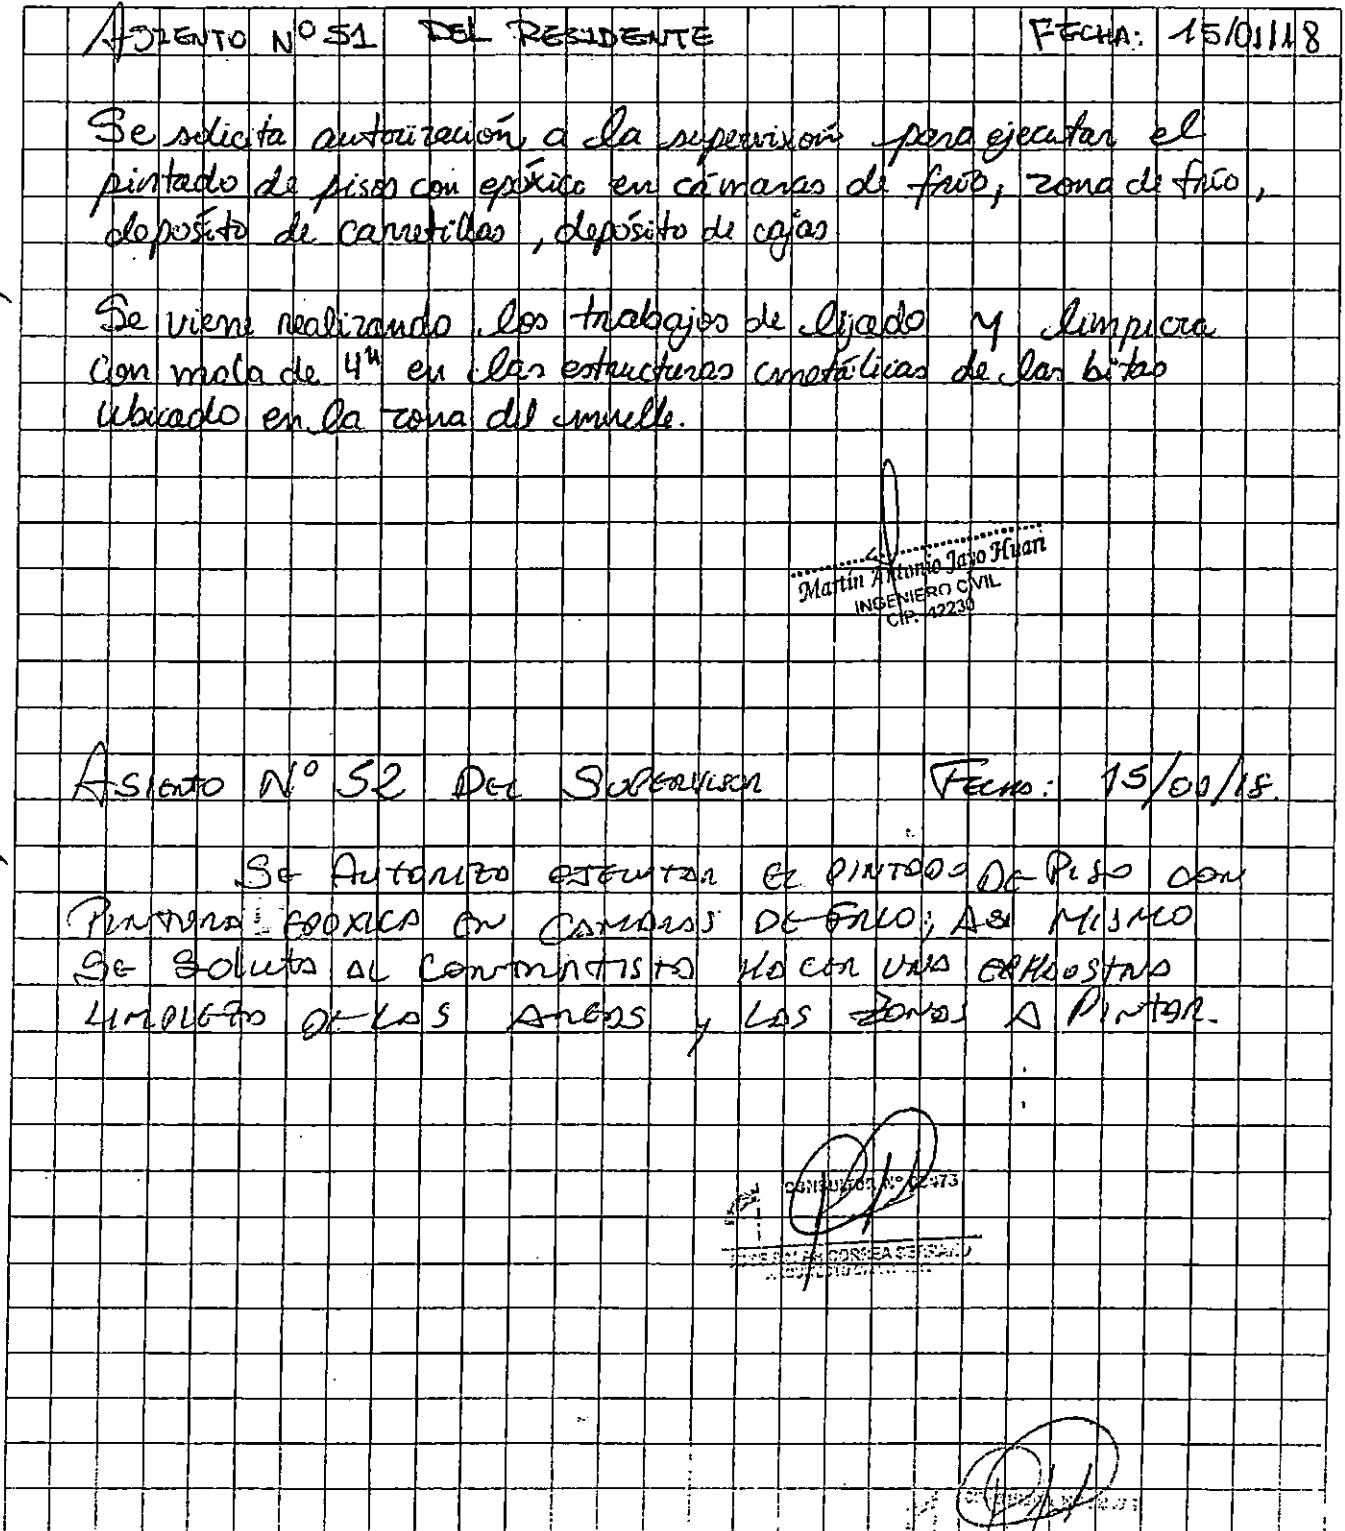 ASIENTO Nº 51 DEL RESIDENTE FECHA: 15/01/18
Se solicita autorización a la supervisión para ejecutar el
pintado de pisos con epóxico en cámaras de frío, zona de frío,
depósito de carretillas, depósito de cajas
Se viene realizando los trabajos de lijado y limpieza
con mola de 4" en las estructuras metálicas de las bitas
ubicado en la zona del muelle.
Martín Antonio Jayo Huari
INGENIERO CIVIL
CIP. 42230
ASIENTO Nº 52 DEL SUPERVISOR FECHA: 15/01/18.
SE AUTORIZO EJECUTAR EL PINTADO DE PISO CON
PINTURA EPOXICA EN CAMARAS DE FRIO; ASI MISMO
SE SOLICITA AL CONTRATISTA HACER UNA EXHAUSTIVA
LIMPIEZA DE LAS AREAS y LAS ZONAS A PINTAR.
CONSULTOR Nº
CORREA SERRANO